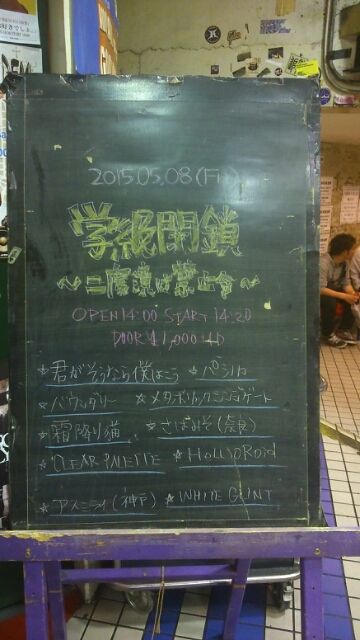 2015.05.08(Fri)
学級閉鎖
〜二度漬け禁止令〜
OPEN 14:00 START 14:20
DOOR ¥1,000+1D
☆君がそうなら僕はこう ☆パシフィコ
☆バウンダリー ☆メタボリックシンジゲート
☆霜降り猫 ☆さばみそ(奈良)
☆CLEAR PALETTE ☆HOLLOROID
☆アスミライ(神戸) ☆WHITE GLINT